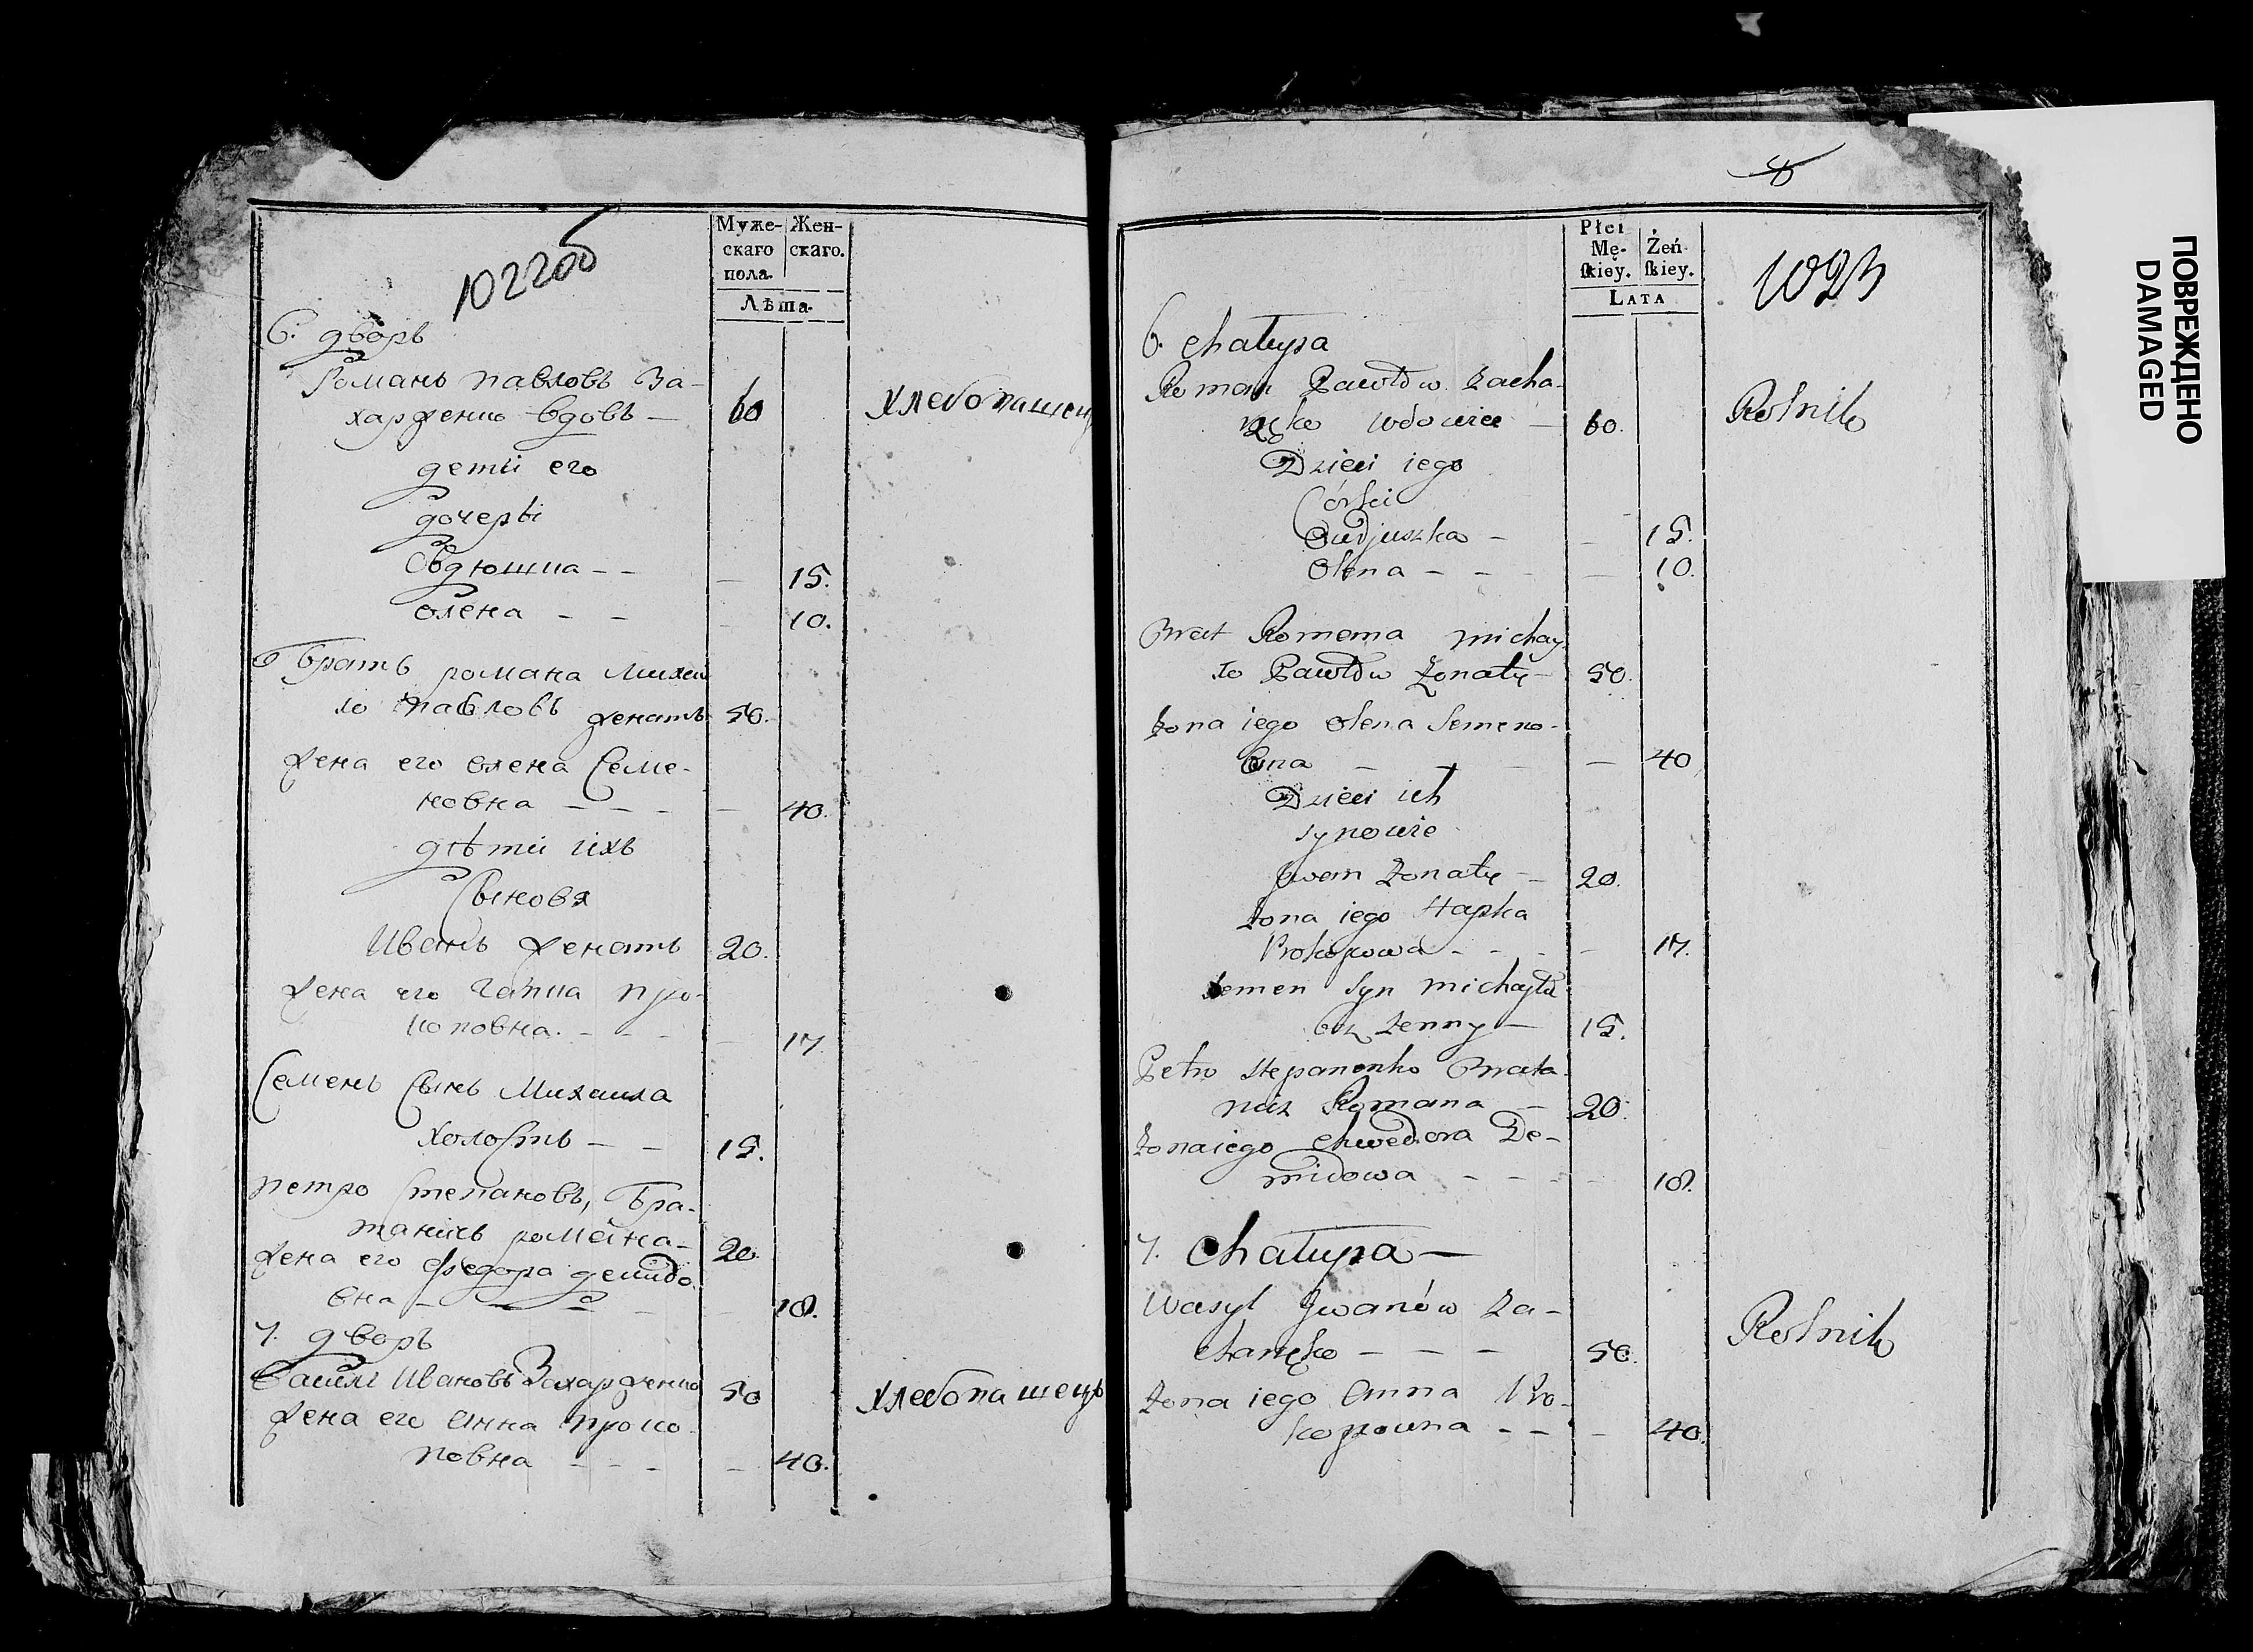 1022об
Муже-
скаго
пола.
Жен-
скаго.
Лѣта.
6. дворъ
Романъ павловъ За-
харженко вдовъ — 60 Хлебопашец
дети его
дочерѣ
Овдюшка - - — 15.
олена - - - 10.
Братъ романа Михай
ло павловъ женатъ 50.
жена его олена Семе-
новна - - - — 40.
дѣти ихъ
Сыновя
Иванъ женатъ 20.
жена его гапка про-
коповна. - - - — 17.
Семенъ Сынъ Михаила
холостъ - - 15.
петро Степановъ, Бра-
таничъ романа- 20.
жена его федора демидо
вна - - - - — 18.
7. дворъ
Василь Ивановъ Захарженко 50
Хлебопашецъ
жена его Анна проко
повна - - - — 40.
8
Płci
Mę-
ſkiey.
Żeń
ſkiey.
LATA
1023
6. Chałupa
Roman Pawłów Zacha-
rzęko wdowiec — 60. Rolnik
Dzieci iego
Córki
Owdjuszka - — 15.
Olena - - - — 10.
Brat Romana michay
ło Pawłów Żonaty — 50.
Żona iego Olena Semeno-
wna - - - — 40
Dzieci ich
synowie
Jwan Żonaty - 20.
Żona iego Hapka
Prokopowa - - - — 17.
Semen Syn michayła
bez Żenny — 15.
Petro Stepanenko Brata-
nicz Romana — 20.
Żona iego Chwedora De-
midowa - - - — 18.
7. Chałupa —
Wasyl Jwanów Za-
charzęko - - - 50. Rolnik
Żona iego Anna Pro-
kopowna - - — 40.
ПОВРЕЖДЕНО
DAMAGED